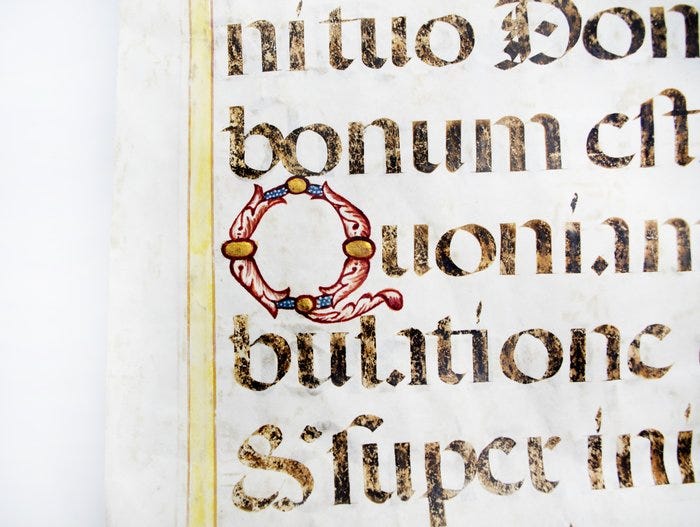 nituo Don
bonum est
Quoniam
bulatione
& super ini